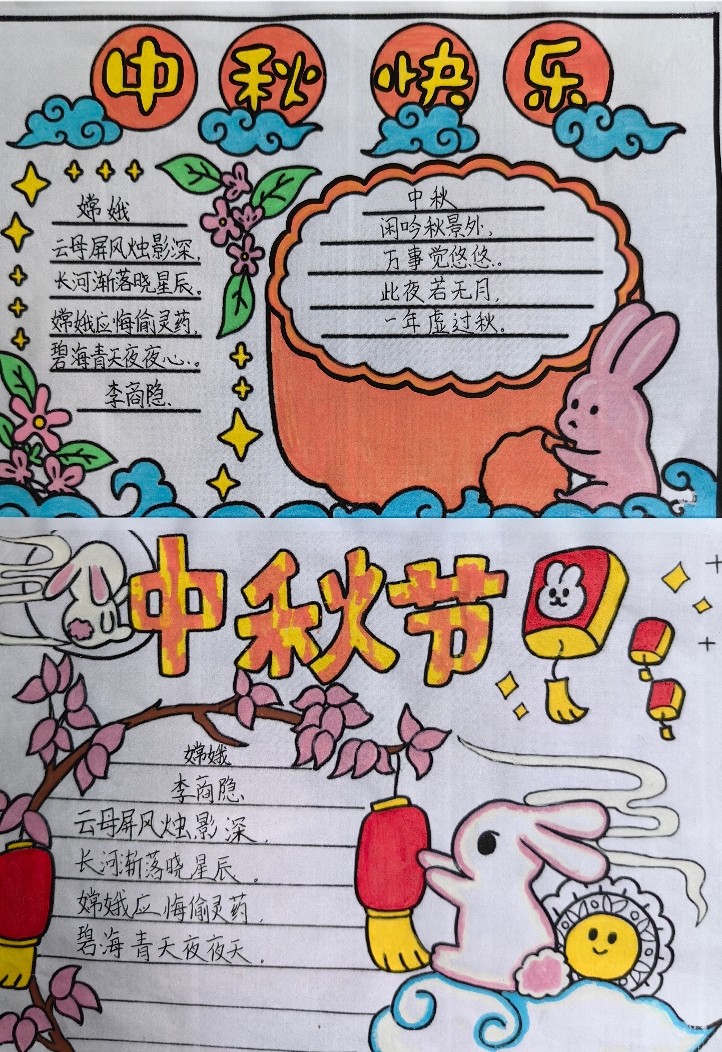 中秋快乐
嫦娥
云母屏风烛影深,
长河渐落晓星辰。
嫦娥应悔偷灵药,
碧海青天夜夜心。
李商隐.
中秋
闲吟秋景外,
万事觉悠悠。
此夜若无月,
一年虚过秋。
中秋节
嫦娥
李商隐
云母屏风烛影深,
长河渐落晓星辰。
嫦娥应悔偷灵药,
碧海青天夜夜天.